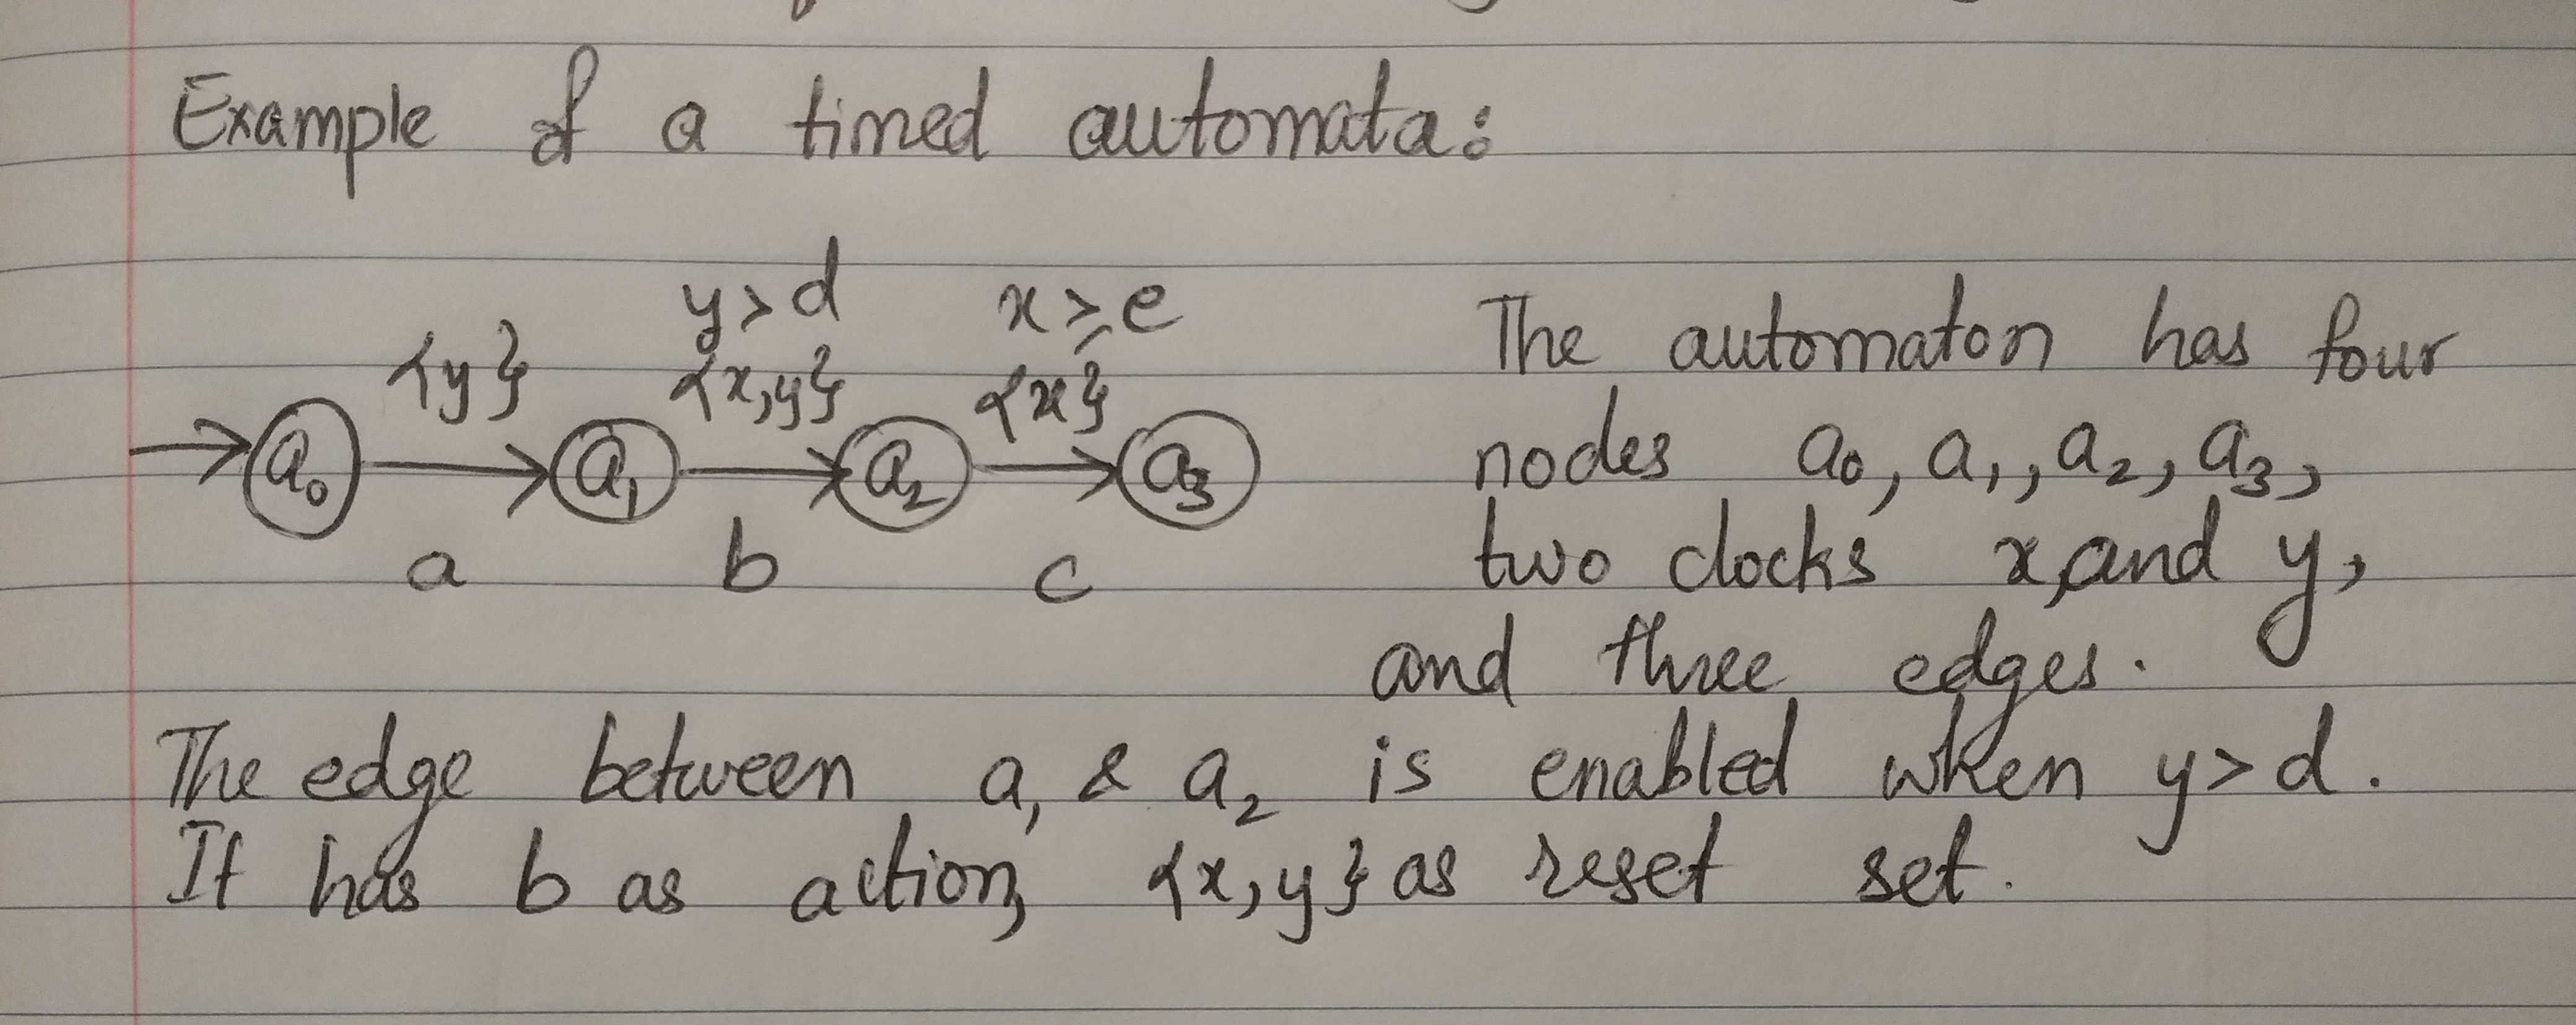 Example of a timed automata:
y>d x≥e
{y} {x,y} {x}
a₀ a₁ a₂ a₃
a b c
The automaton has four
nodes a₀, a₁, a₂, a₃,
two clocks x, and y,
and three edges.
The edge between a₁ & a₂ is enabled when y>d.
It has b as action, {x,y} as reset set.